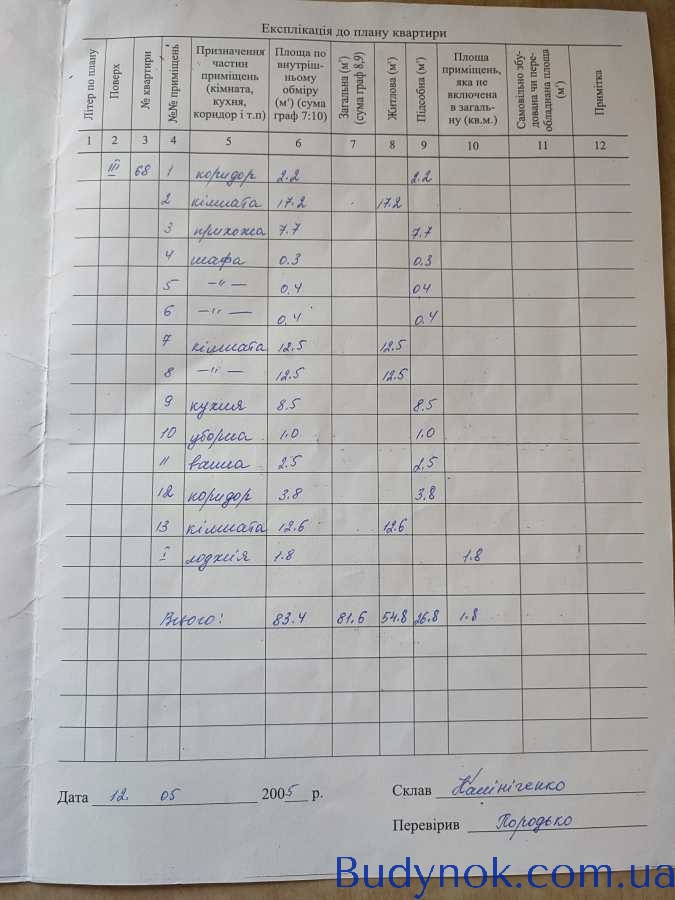 Експлікація до плану квартири
Літер по плану
Поверх
№ квартири
№№ приміщень
Призначення
частин
приміщень
(кімната,
кухня,
коридор і т.п)
Площа по
внутріш-
ньому
обміру
(м²) (сума
граф 7:10)
Загальна (м²)
(сума граф 8,9)
Житлова (м²)
Підсобна (м²)
Площа
приміщень,
яка не
включена
в загаль-
ну (кв.м.)
Самовільно збу-
дована чи пере-
обладнана площа
(м²)
Примітка
1 2 3 4 5 6 7 8 9 10 11 12
III 68 1 коридор 2.2 2.2
2 кімната 17.2 17.2
3 прихожа 7.7 7.7
4 шафа 0.3 0.3
5 —"— 0.4 0.4
6 —"— 0.4 0.4
7 кімната 12.5 12.5
8 —"— 12.5 12.5
9 кухня 8.5 8.5
10 уборна 1.0 1.0
11 ванна 2.5 2.5
12 коридор 3.8 3.8
13 кімната 12.6 12.6
I лоджія 1.8 1.8
Всього: 83.4 81.6 54.8 26.8 1.8
Дата 12. 05 2005 р.
Склав
Перевірив Породько
Budynok.com.ua